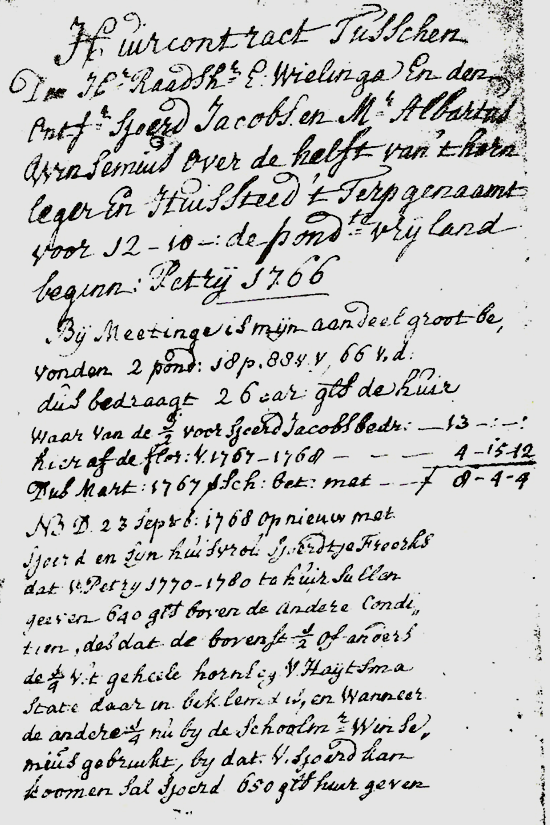 Huurcontract Tusschen
Den Hr. Raadshr. E: Wielinga En den
Ontfr. Sjoerd Jacobs. en Mr. Albartus
Winsemius over de helft van't horn
leger En Huissteed 't Terp genaamt
voor 12-10-: de pondte vrij land
beginn: Petrij 1766
Bij Meetinge is mijn aandeel groot be,
vonden 2 pond: 18 p. 88 v. v, 66 v. d.
dus bedraagt 26 car: gls de huir
waar van de ½ voor Sjoerd Jacobs bedr: — 13 -:-:
hier af de flor: v. 1767-1768 - - - 4-15-12
Dus Mart: 1767 p Sch: bet: met - - f 8-4-4
NB D. 23 Septb: 1768 opnieuw met
Sjoerd en syn huisvrou Sjoerdtje Freerks
dat v. Petry 1770-1780 te huir sullen
geeven 640 gls boven de andere Condi,
tien, des dat de bovenst ½ of anders
de ¼ v.'t geheele hornleg V Haytsma
State daar in beklemd is, en Wanneer
de andere ¼ nu by de Schoolmr. Winse,
mius gebruikt, by dat. V. Sjoerd kan
koomen sal Sjoerd 650 gls huur geven